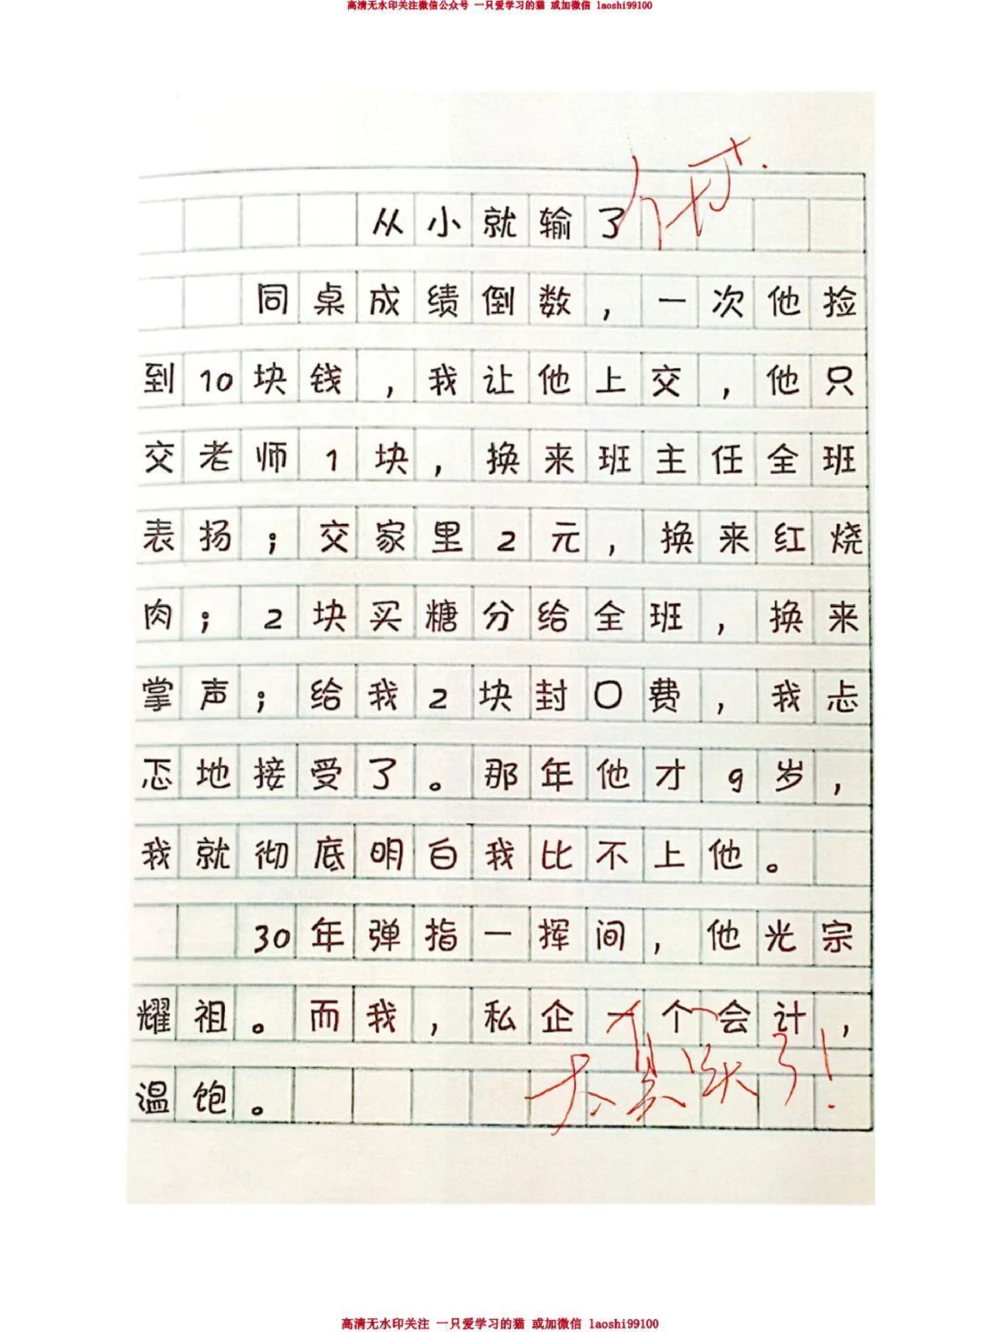 高清无水印关注微信公众号 一只爱学习的猫 或加微信 laoshi99100
从小就输了
同桌成绩倒数，一次他捡
到10块钱，我让他上交，他只
交老师1块，换来班主任全班
表扬；交家里2元，换来红烧
肉；2块买糖分给全班，换来
掌声；给我2块封口费，我忐
忑地接受了。那年他才9岁，
我就彻底明白我比不上他。
30年弹指一挥间，他光宗
耀祖。而我，私企一个会计，
温饱。
太真实了！
高清无水印关注 一只爱学习的猫 或加微信 laoshi99100